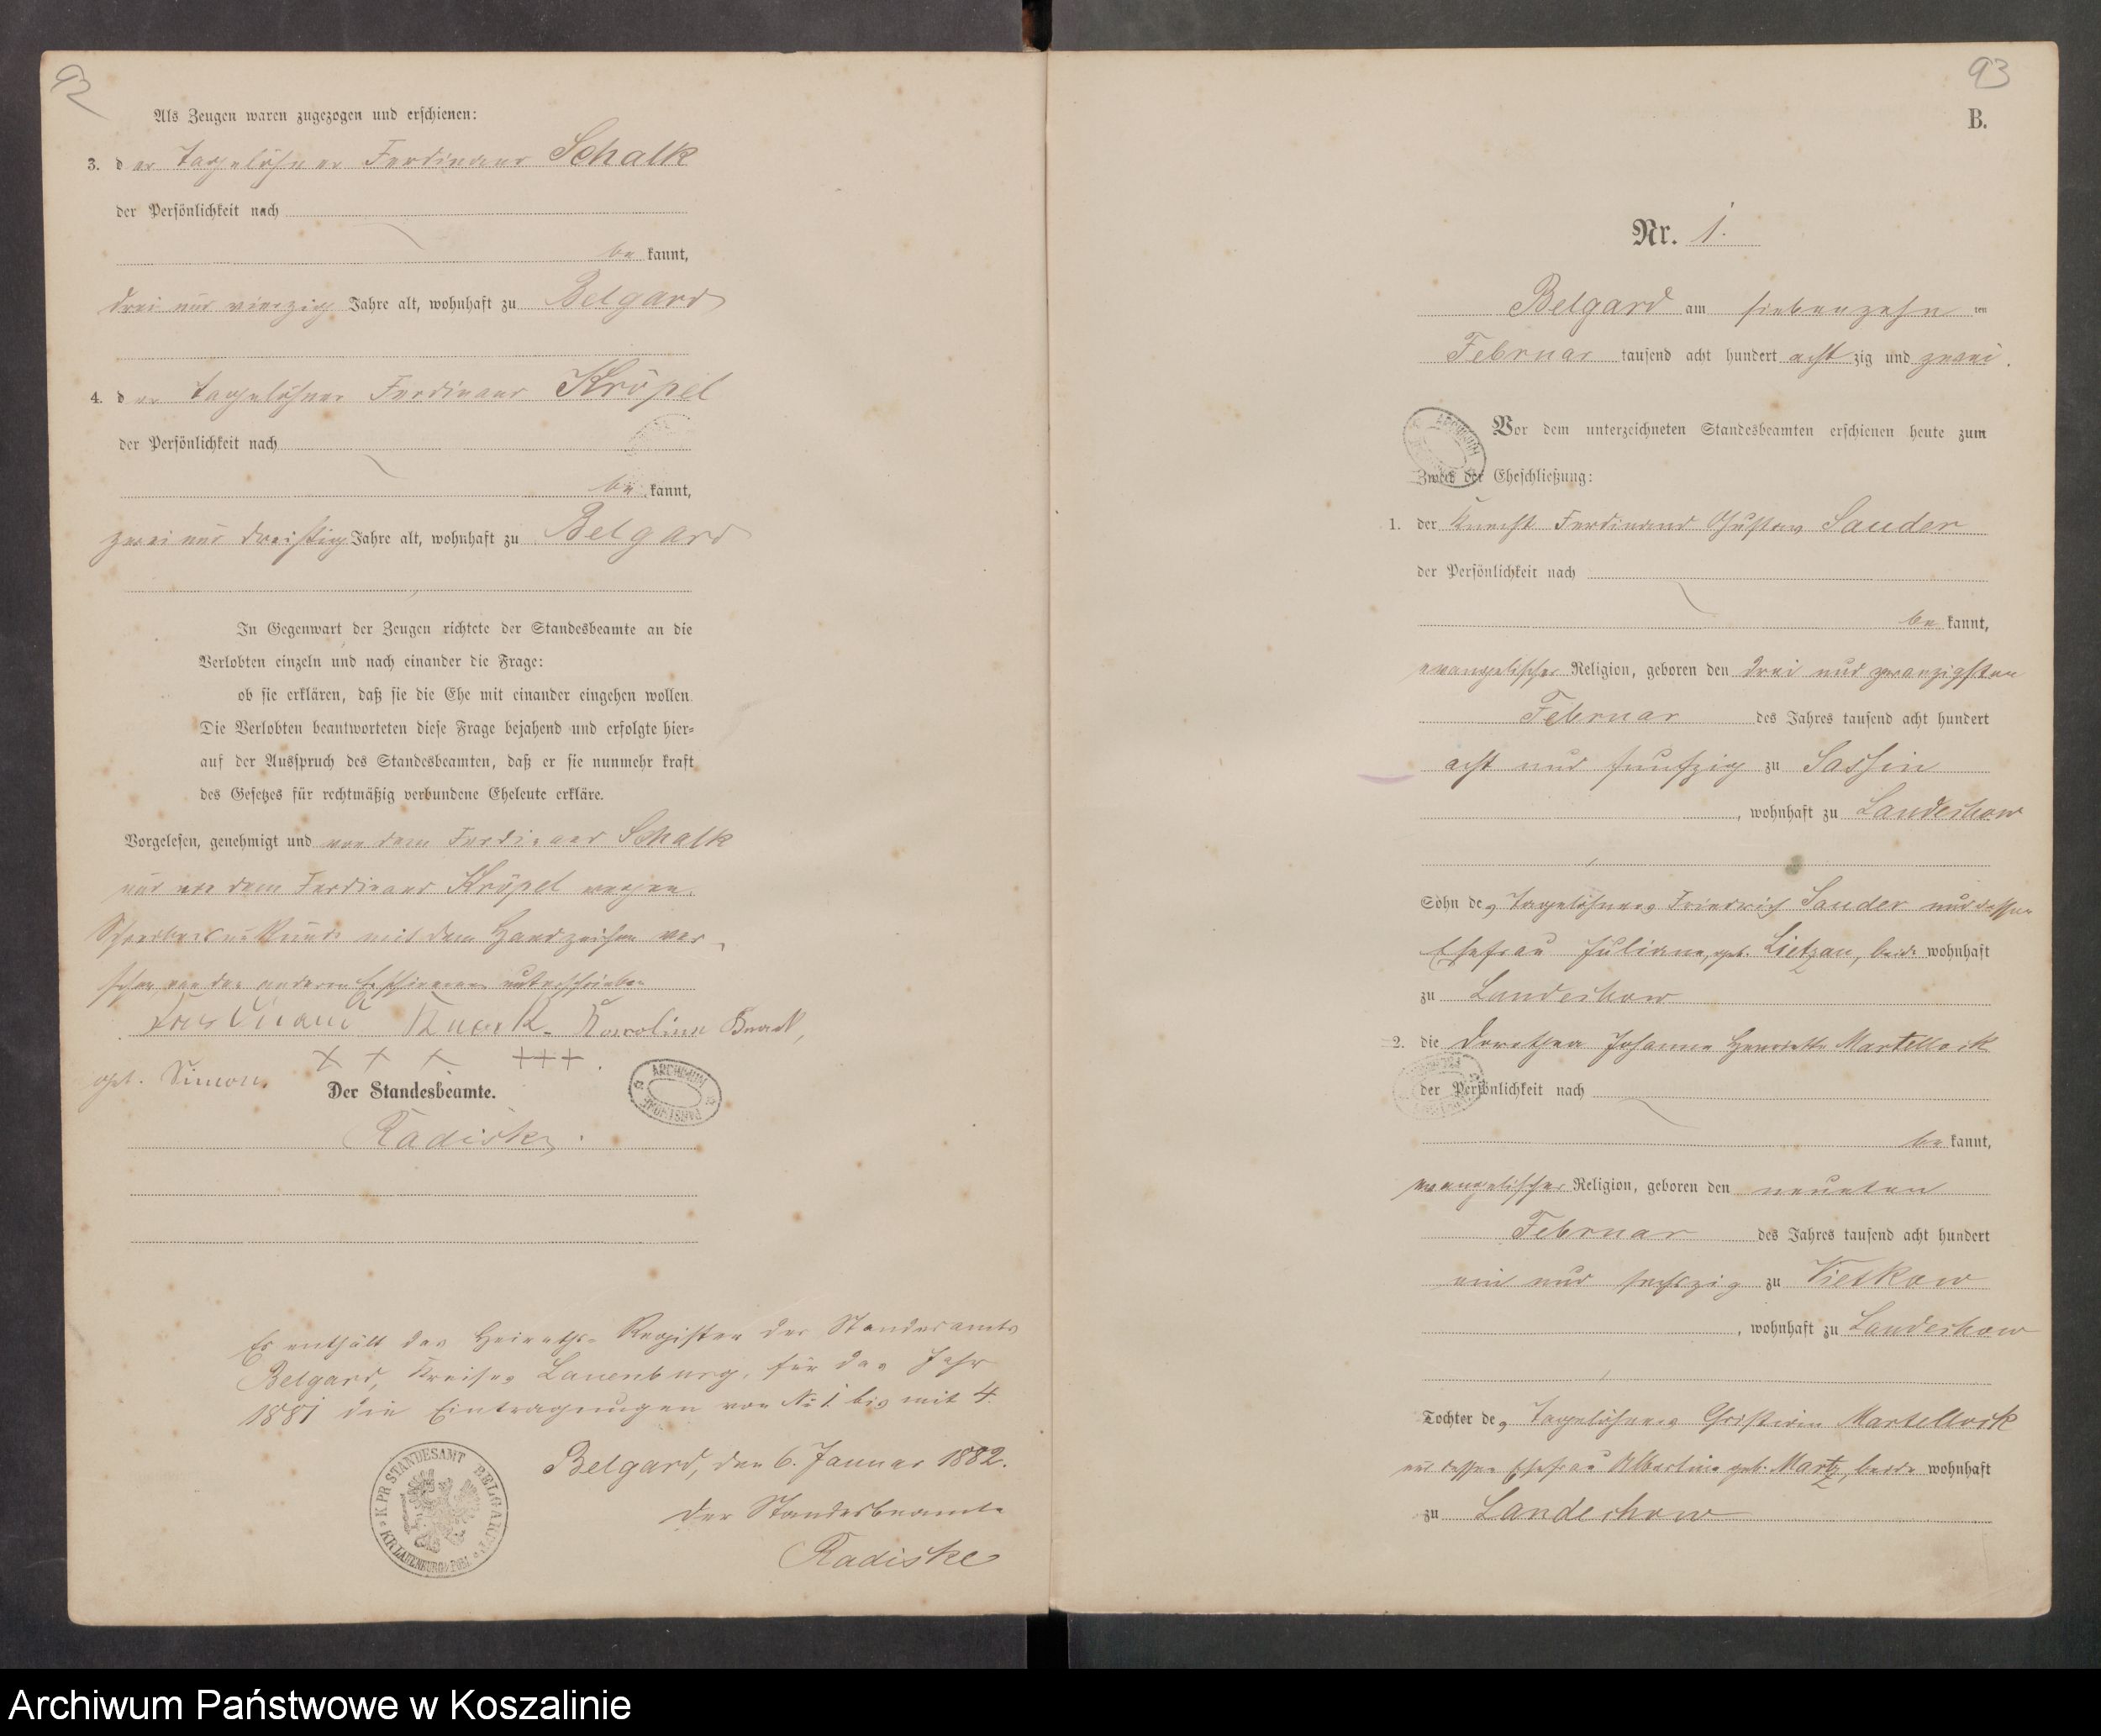 92
Als Zeugen waren zugezogen und erschienen:
3. der Tagelöhner Ferdinand Schalk
der Persönlichkeit nach
be kannt,
drei und vierzig Jahre alt, wohnhaft zu Belgard
4. der Tagelöhner Ferdinand Kröpel
der Persönlichkeit nach
be kannt,
zwei und dreißig Jahre alt, wohnhaft zu Belgard
In Gegenwart der Zeugen richtete der Standesbeamte an die
Verlobten einzeln und nach einander die Frage:
ob sie erklären, daß sie die Ehe mit einander eingehen wollen.
Die Verlobten beantworteten diese Frage bejahend und erfolgte hier-
auf der Ausspruch des Standesbeamten, daß er sie nunmehr kraft
des Gesetzes für rechtmäßig verbundene Eheleute erkläre.
Vorgelesen, genehmigt und von dem Ferdinand Schalk
und von dem Ferdinand Kröpel wegen
Schreibensunkunde mit dem Handzeichen ver-
sehen, von den anderen Erschienenen unterschrieben
Karoline
geb. Simon. + + + +++.
Der Standesbeamte.
Radiske.
ARCHIWUM PAŃSTWOWE
Es enthält das Heiraths-Register des Standesamts
Belgard, Kreises Lauenburg, für das Jahr
1881 die Eintragungen von No 1 bis mit 4.
Belgard, den 6. Januar 1882.
Der Standesbeamte
Radiske
K. PR. STANDESAMT BELGARD KR. LAUENBURG i/POM.
93
B.
Nr. 1.
Belgard am siebenzehn ten
Februar tausend acht hundert acht zig und zwei.
ARCHIWUM
Vor dem unterzeichneten Standesbeamten erschienen heute zum
Zweck der Eheschließung:
1. der Knecht Ferdinand Gustav Sander
der Persönlichkeit nach
be kannt,
evangelischer Religion, geboren den drei und zwanzigsten
Februar des Jahres tausend acht hundert
acht und funfzig zu Sassin
, wohnhaft zu Landechow
Sohn des Tagelöhners Friedrich Sander und dessen
Ehefrau Juliane, geb. Lietzau, beide wohnhaft
zu Landechow
2. die Dorothea Johanne Henriette Martellock
der Persönlichkeit nach
be kannt,
evangelischer Religion, geboren den neunten
Februar des Jahres tausend acht hundert
ein und sechszig zu Vietkow
, wohnhaft zu Landechow
Tochter des Tagelöhners Christian Martellock
und dessen Ehefrau Albertine geb. Martz, beide wohnhaft
zu Landechow
Archiwum Państwowe w Koszalinie